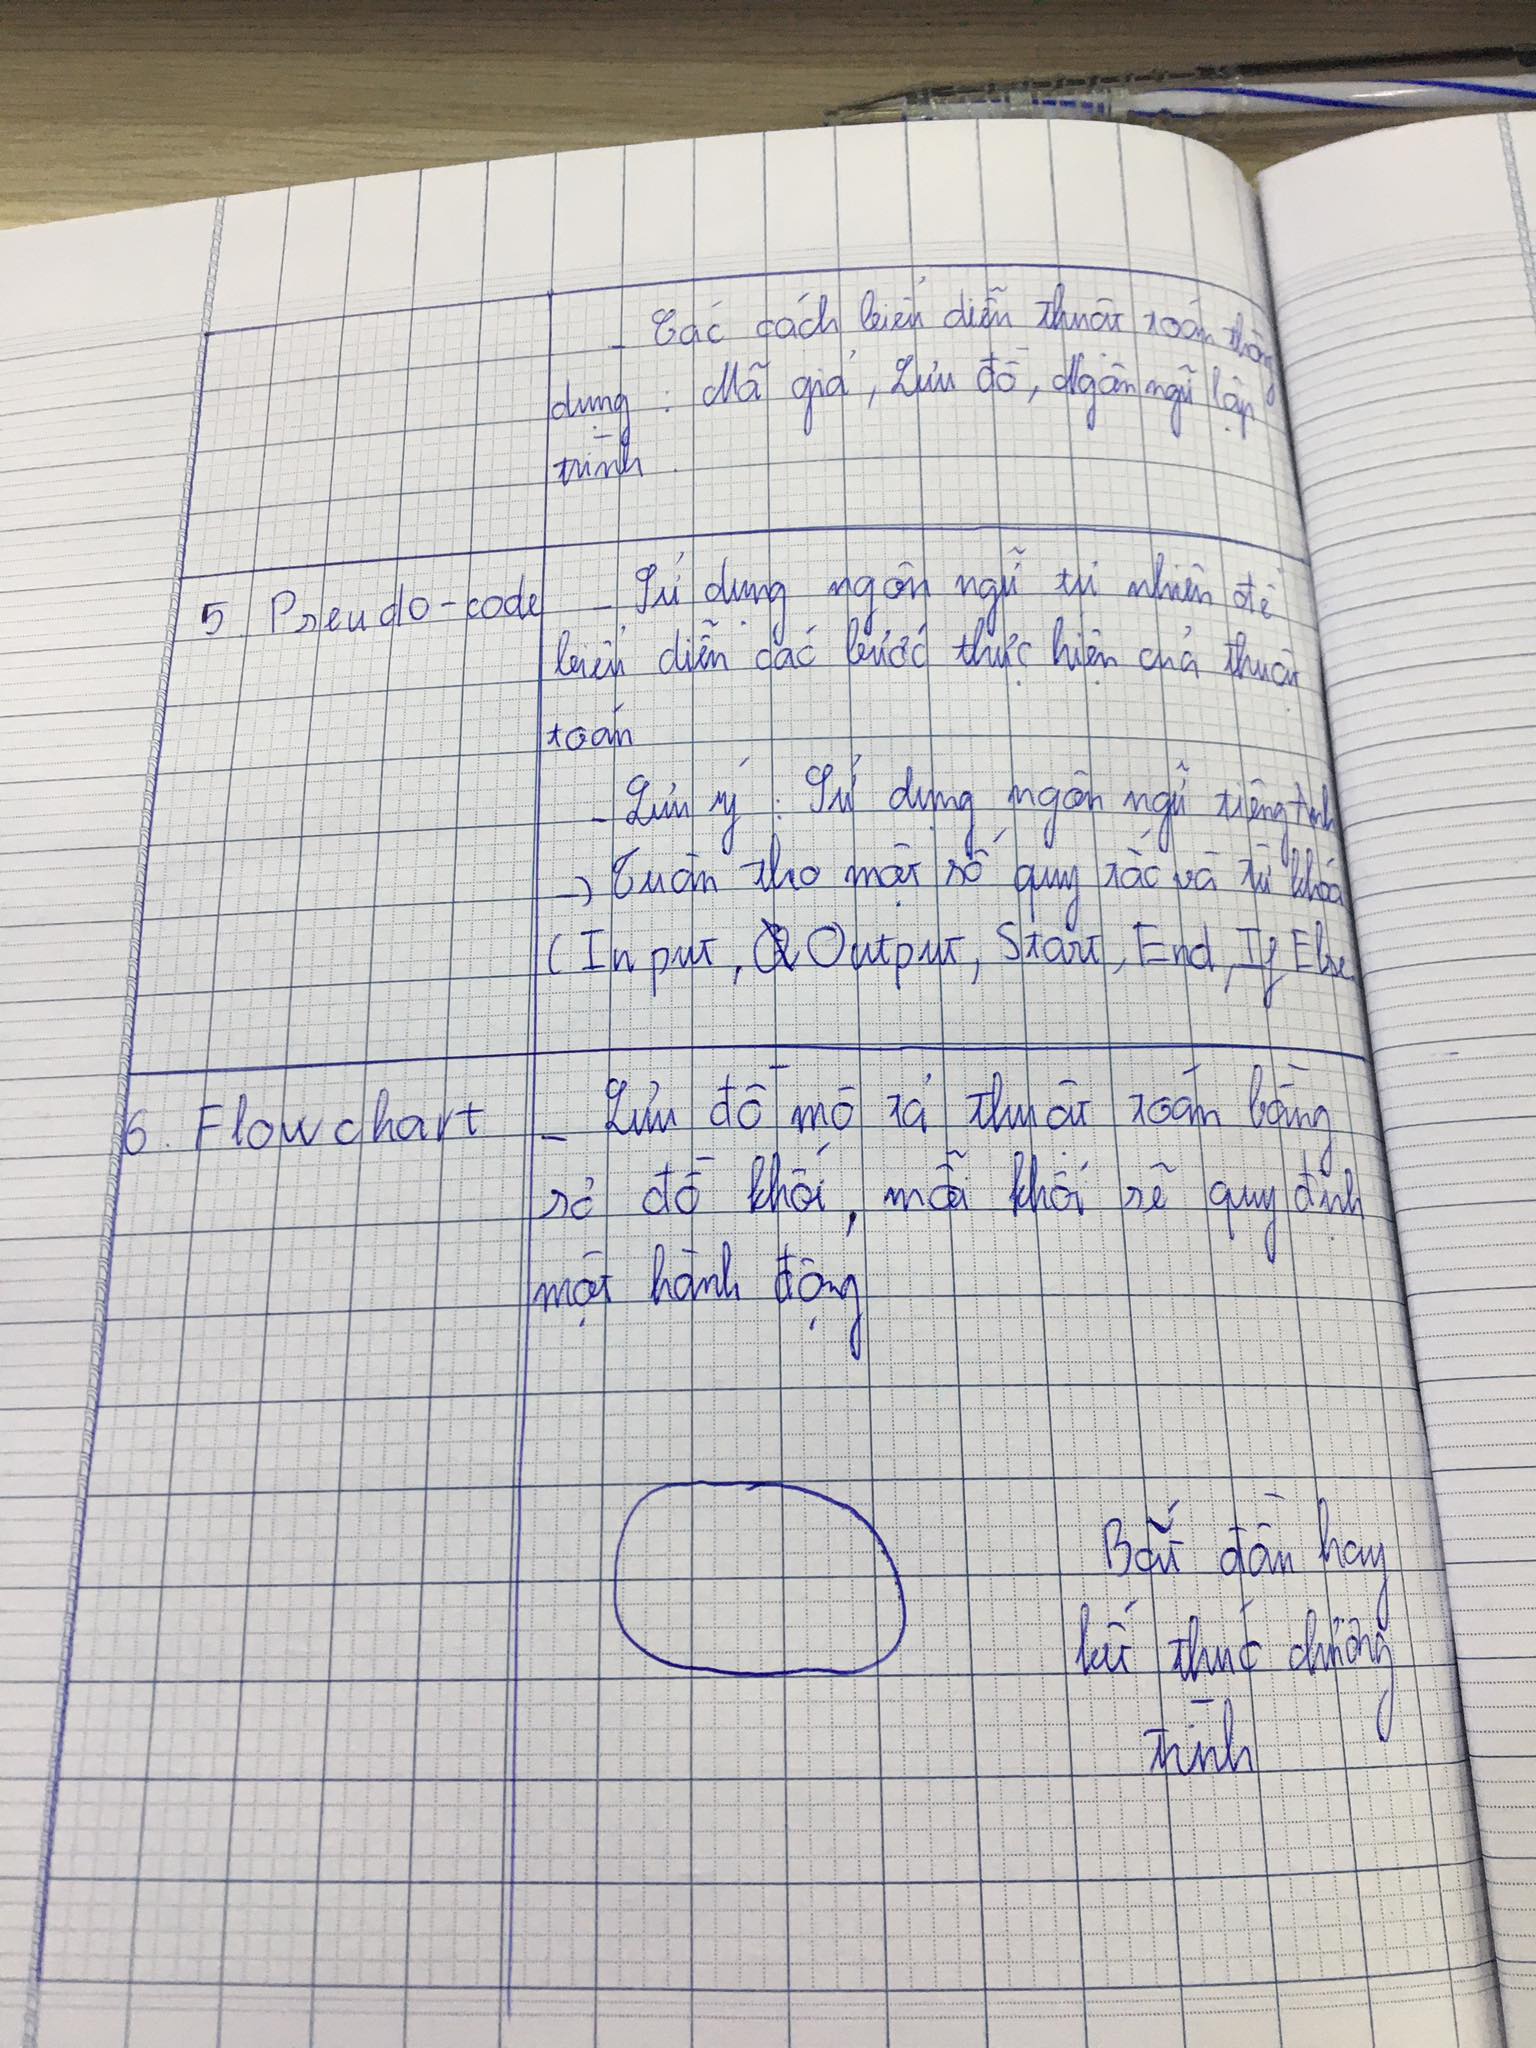 - Các cách biểu diễn thuật toán thông
dụng : Mã giả, Lưu đồ, Ngôn ngữ lập
trình.
5. Pseudo-code
- Sử dụng ngôn ngữ tự nhiên để
biểu diễn các bước thực hiện của thuật
toán
- Lưu ý : Sử dụng ngôn ngữ tiếng Anh
→ Tuân tho một số quy tắc và từ khóa
(Input, Output, Start, End, If Else
6. Flowchart
- Lưu đồ mô tả thuật toán bằng
sơ đồ khối, mỗi khối sẽ quy định
một hành động
Bắt đầu hay
kết thúc chương
trình